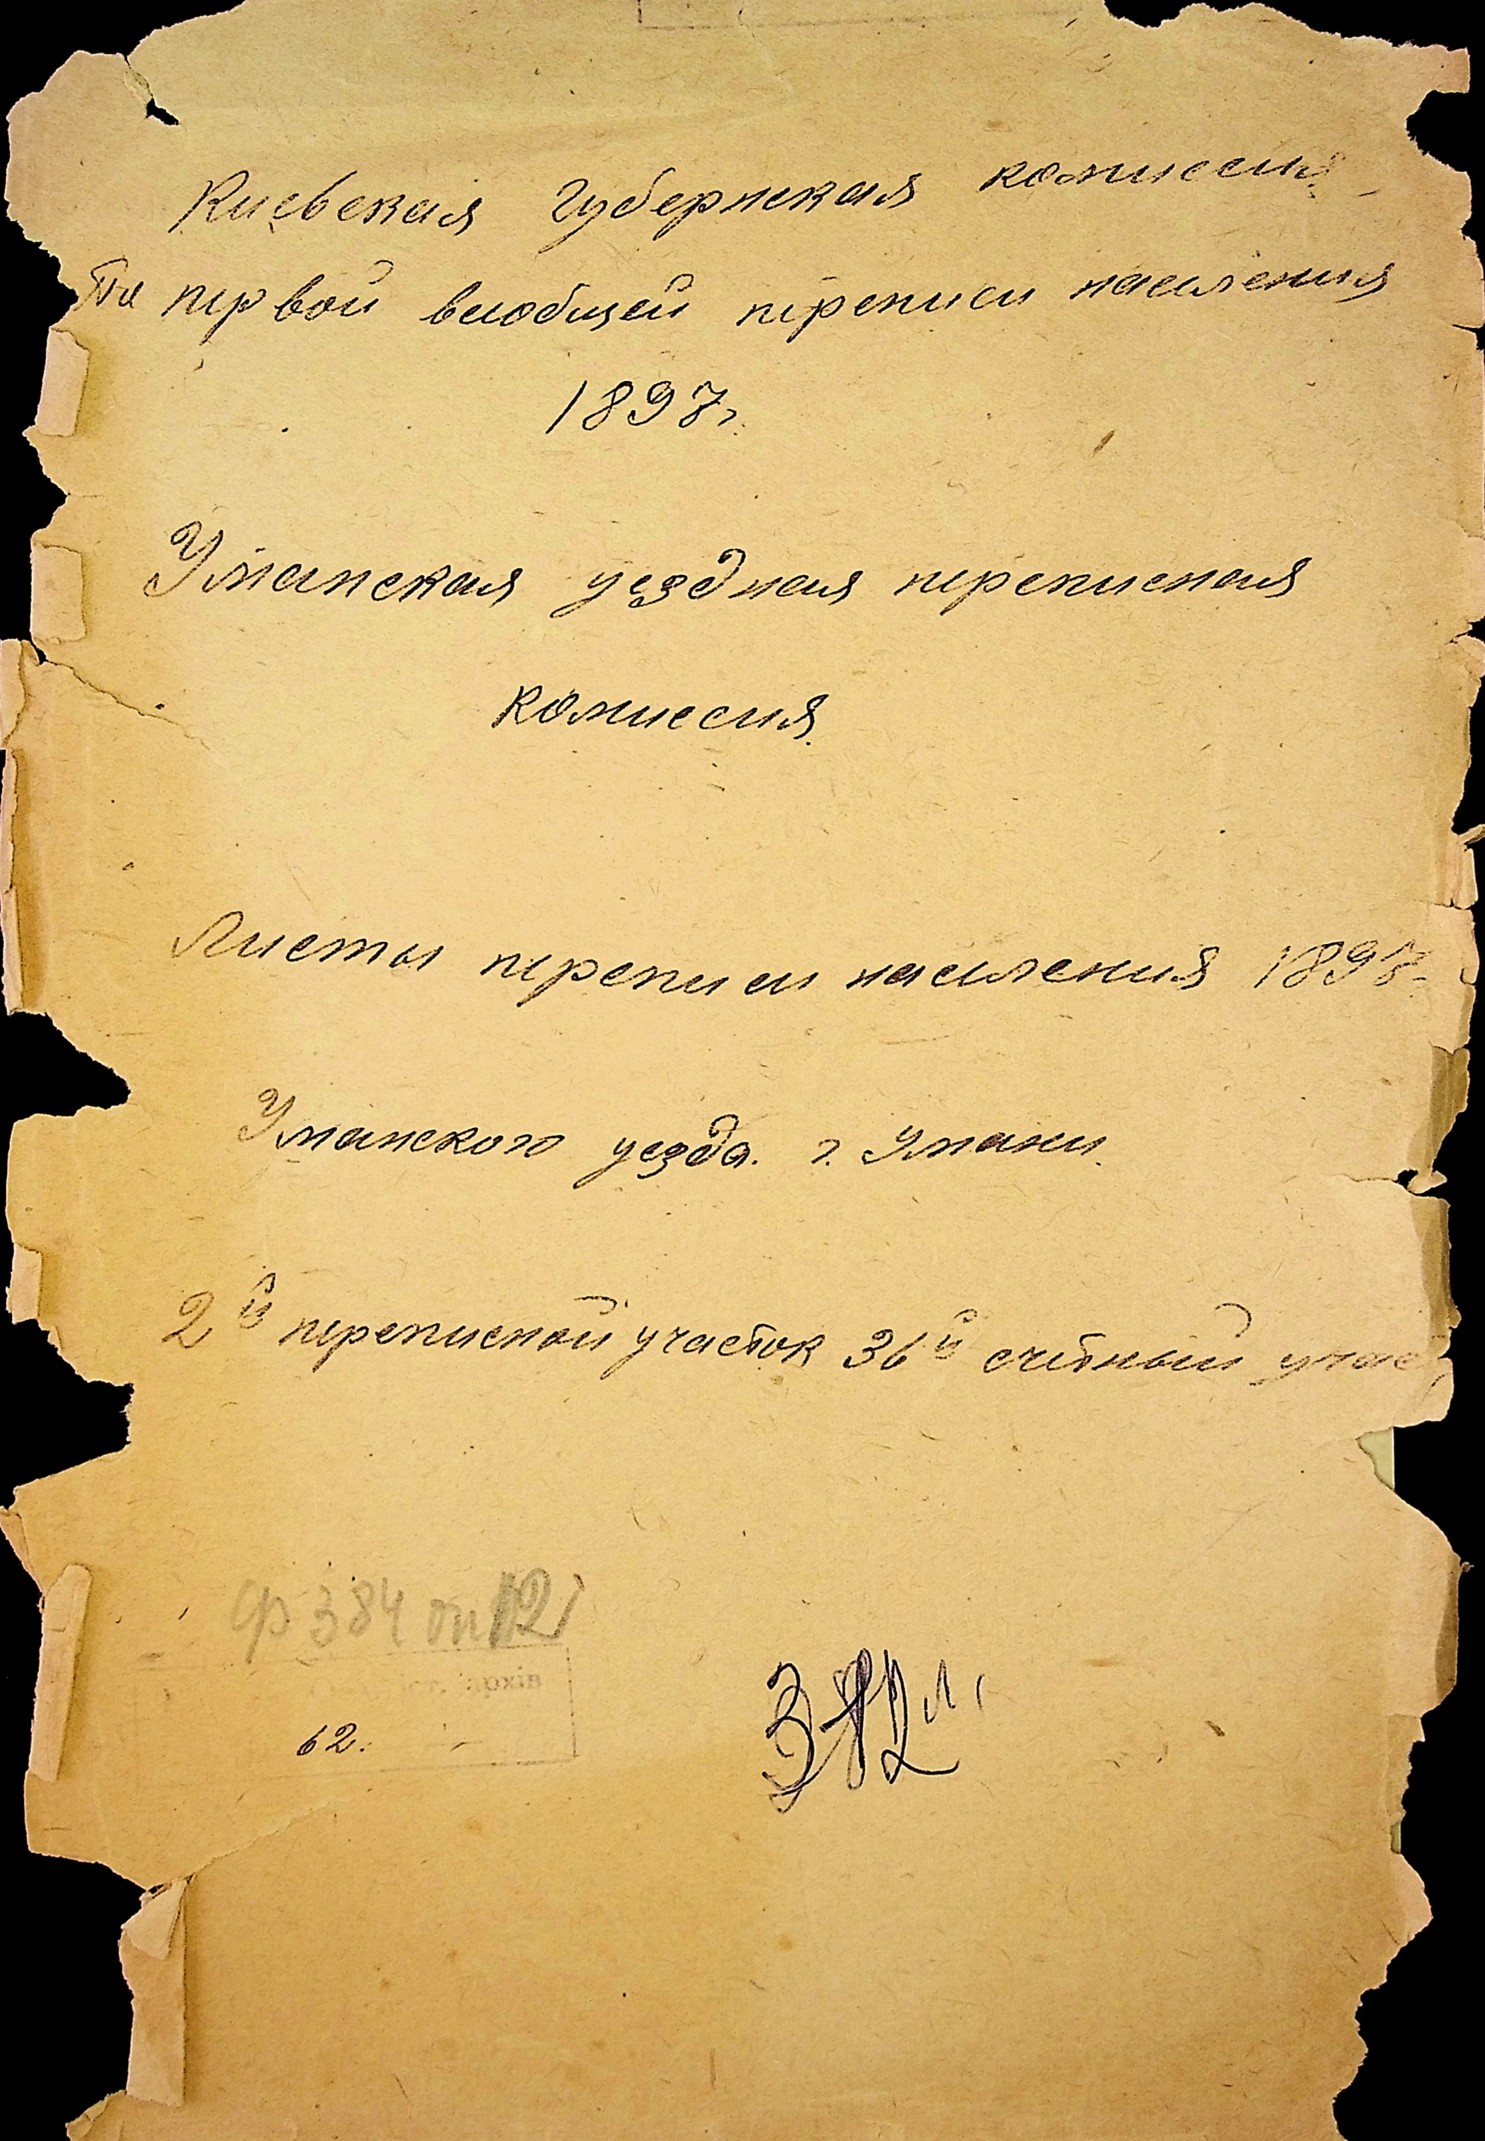 Киевская Губернская комиссия
По первой всеобщей переписи населения
1897г.
Уманская уездная переписная
комиссия.
Листы переписи населения 1897-
Уманского уезда. г. Умани.
2й переписной участок 36й счётный учас
ф 384 оп 12
архів
62.
л.